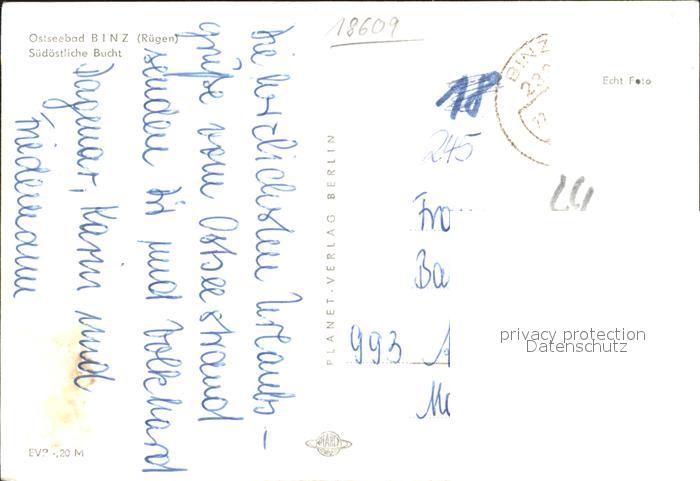 Ostseebad BINZ (Rügen)
Südöstliche Bucht
Die herzlichsten Urlaubs-
grüße vom Ostseestrand
senden Dir und Volkhard
Dagmar, Karin und
Friedemann
EVP -,20 M
PLANET-VERLAG BERLIN
18609
18
245
BINZ
Echt Foto
44
Fro
Ba
993
privacy protection
Datenschutz